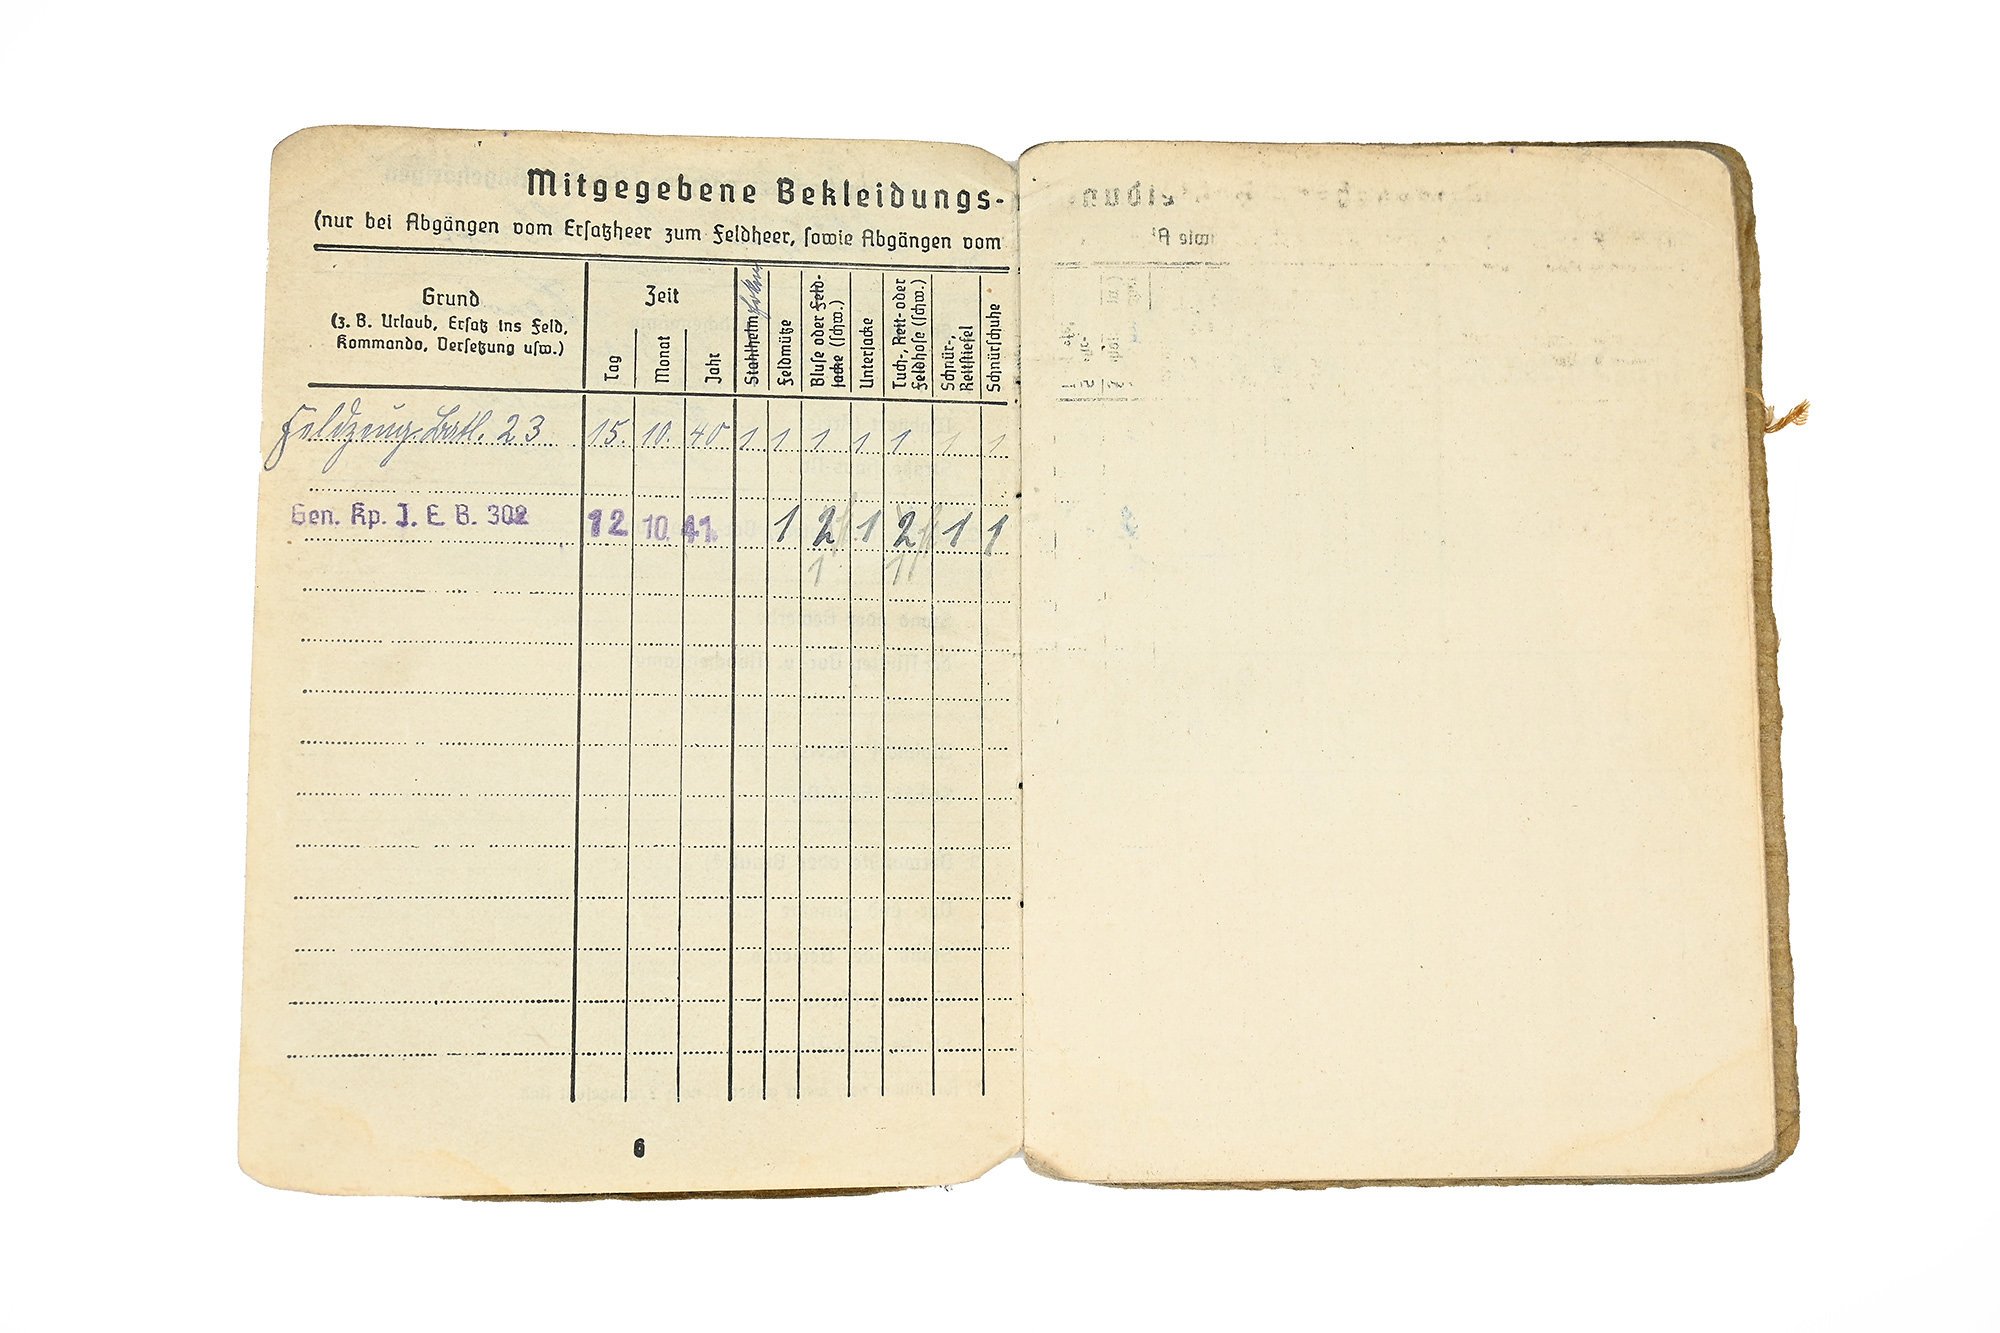 Mitgegebene Bekleidungs-
(nur bei Abgängen vom Ersatzheer zum Feldheer, sowie Abgängen vom
Grund
(z. B. Urlaub, Ersatz ins Feld,
Kommando, Versetzung usw.)
Zeit
Tag
Monat
Jahr
Stahlhelm
Feldmütze
Bluse oder Feld-
jacke (schw.)
Unterjacke
Tuch-, Reit- oder
Feldhose (schw.)
Schnür-,
Reitstiefel
Schnürschuhe
Feldzeug. Batl. 23 15. 10. 40 1 1 1 1 1 1 1
Gen. Kp. J. E. B. 302 12. 10. 41. 1 2 1 2 1 1
1 11
6